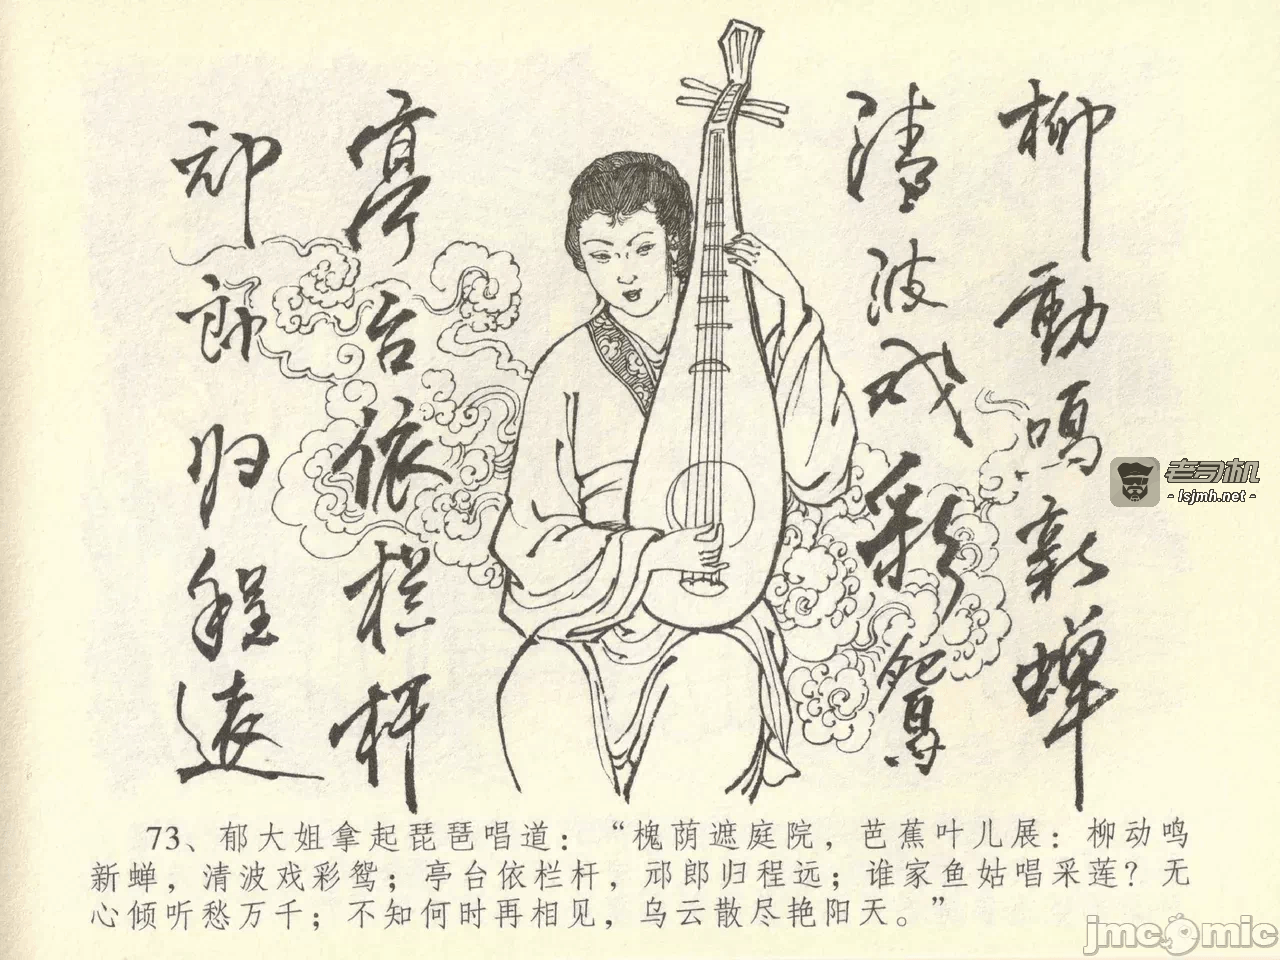 柳動鳴新蝉
清波戏彩鸳
亭台依栏杆
祁郎归程远
老司机
- lsjmh.net -
73、郁大姐拿起琵琶唱道：“槐荫遮庭院，芭蕉叶儿展：柳动鸣
新蝉，清波戏彩鸳；亭台依栏杆，祁郎归程远；谁家鱼姑唱采莲？无
心倾听愁万千；不知何时再相见，乌云散尽艳阳天。”
jmcomic